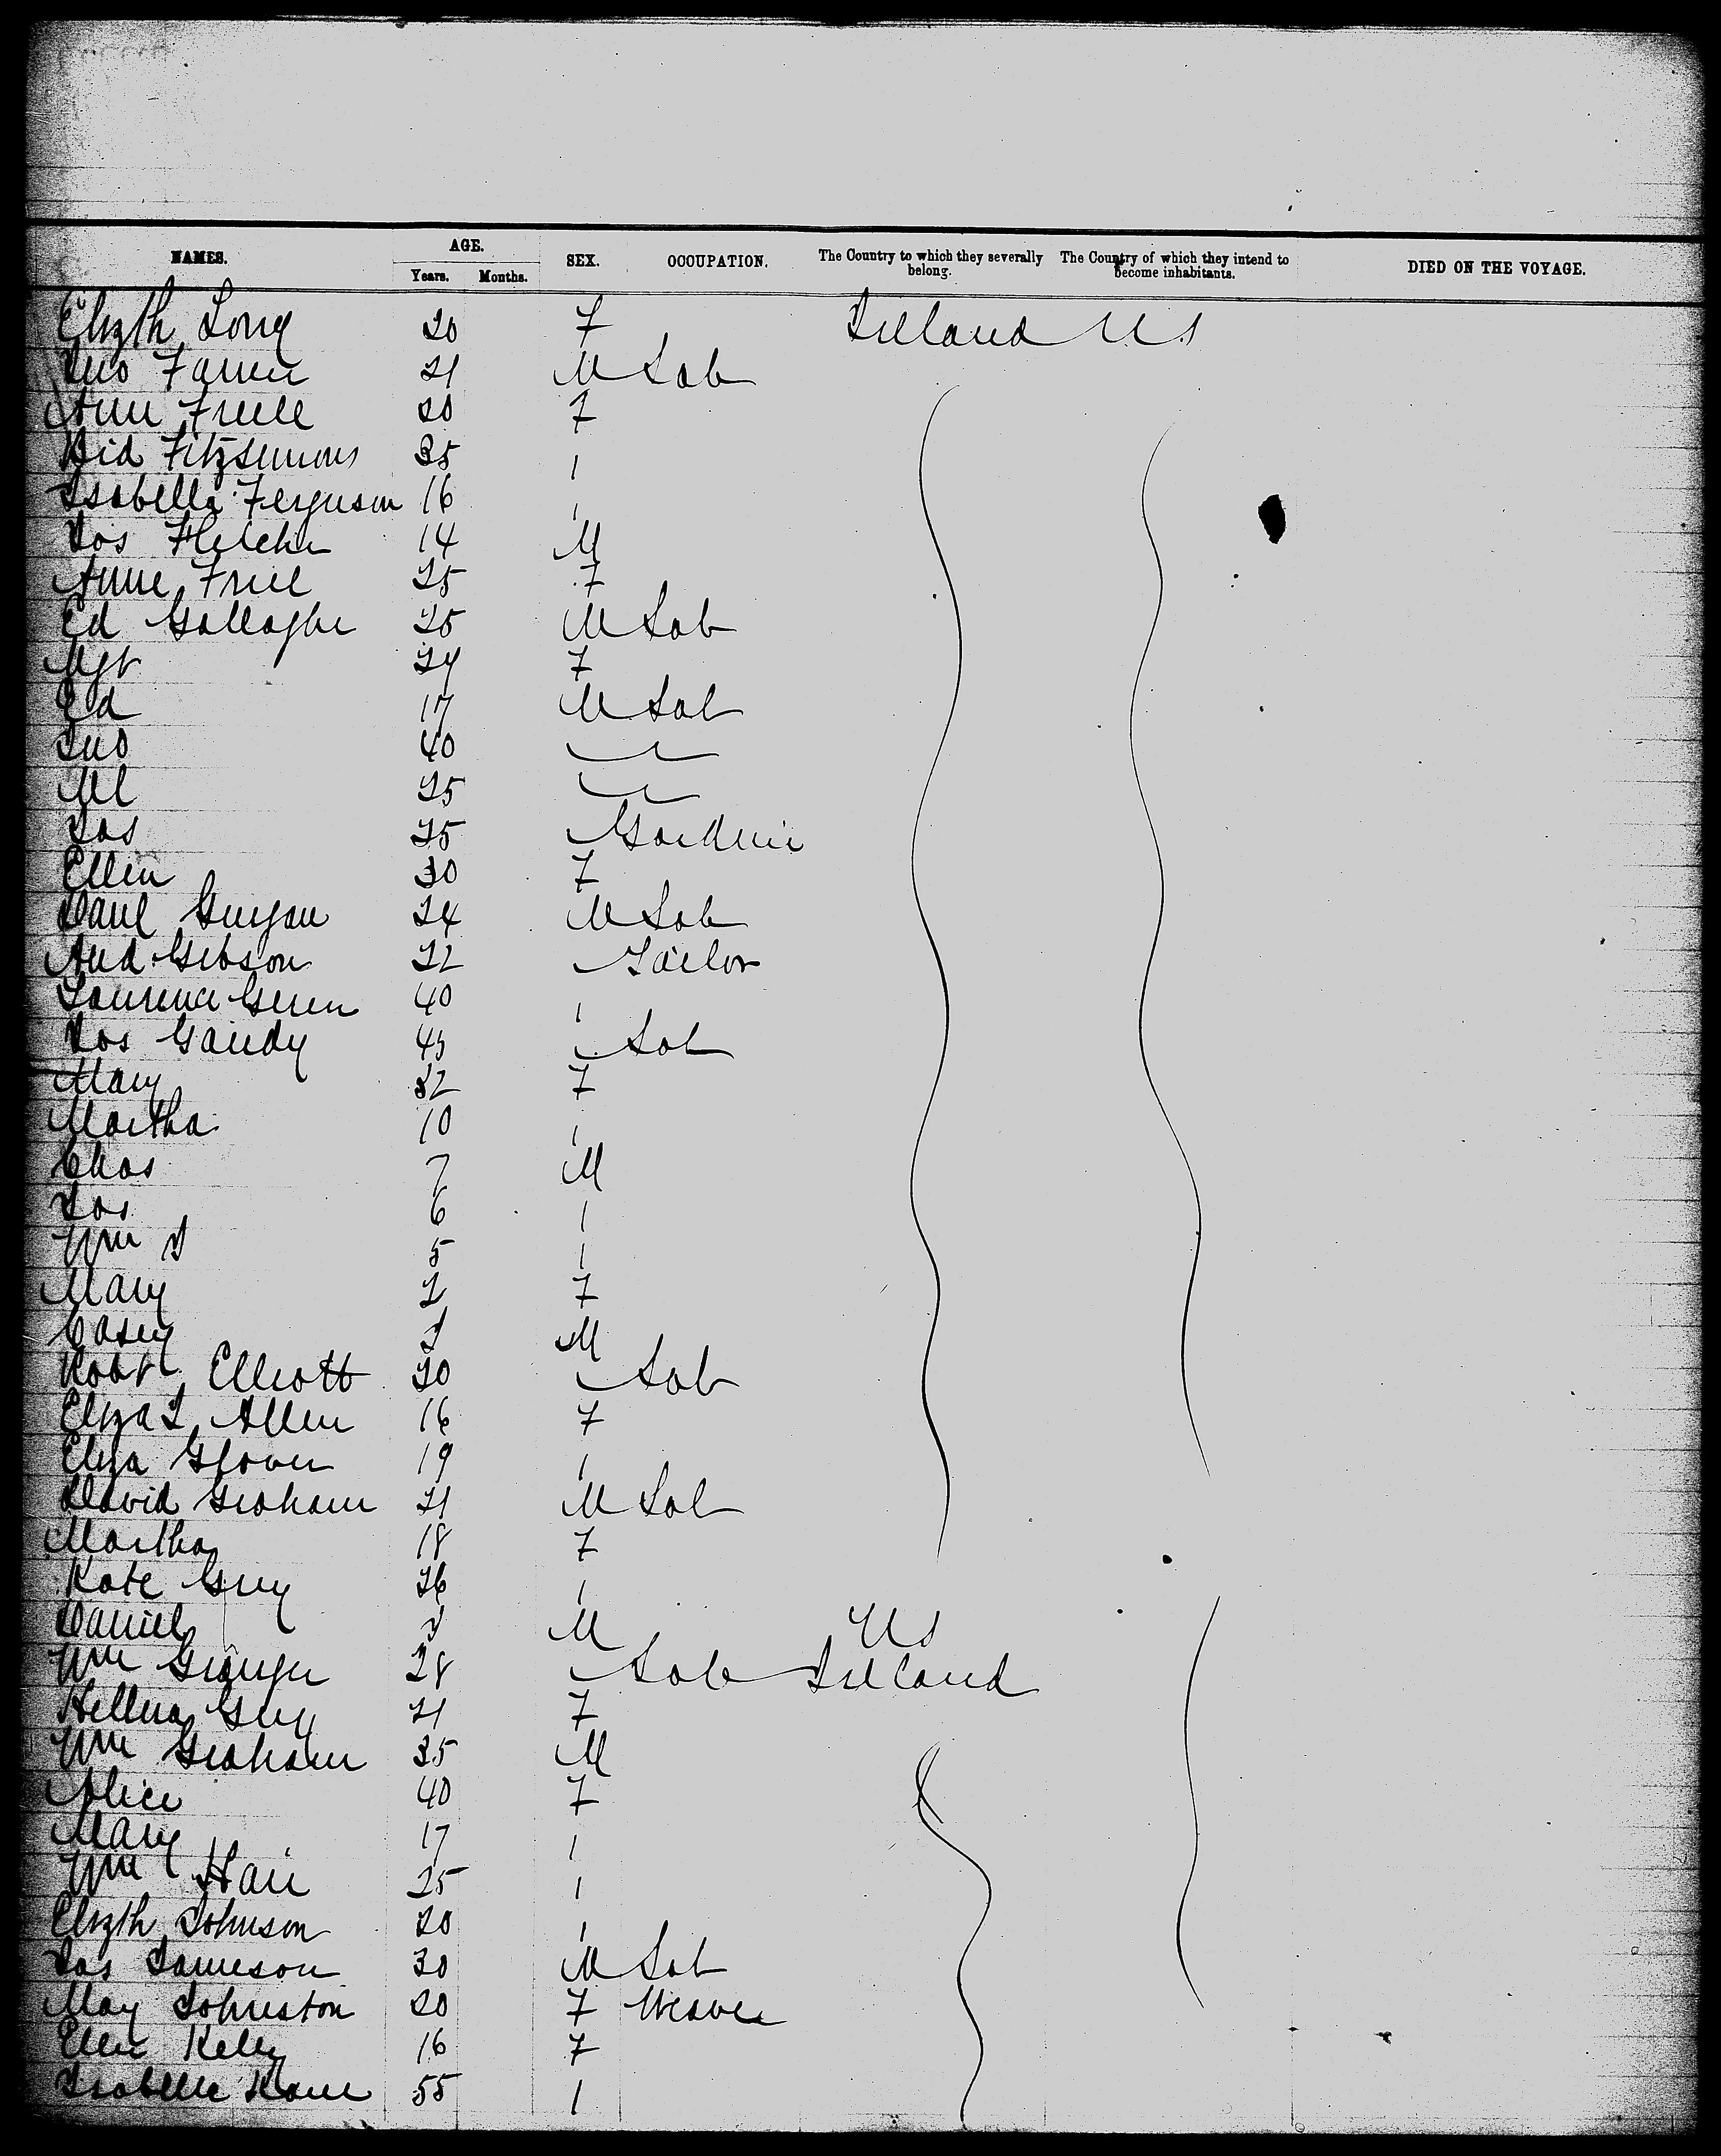 NAMES. AGE. SEX. OCCUPATION. The Country to which they severally belong. The Country of which they intend to become inhabitants. DIED ON THE VOYAGE.
Years. Months.
Elizth Long 20 F Ireland U.S
Jno Farren 21 M Lab
Ann Freele 20 F
Bid Fitzsimons 35 "
Isabella Ferguson 16 "
Jos Fletcher 14 M
Anne Friel 25 F
Ed Gallagher 25 M Lab
Mgt 24 F
Ed 17 M Lab
Jno 40
Ml 25
Jas 25 Gardner
Ellen 30 F
Danl 24 M Lab
And Gibson 22 Tailor
Laurence Green 40 "
Jos Gandy 45 Lab
Mary 32 F
Martha 10 "
Chas 7 M
Jos 6 "
Wm J 5 "
Mary 2 F
Casey M
Robt Elliott 20 Lab
Eliza J Allen 16 F
Eliza Glover 19 "
David Graham 21 M Lab
Martha 18 F
Kate Grey 26 "
Daniel M US
Wm Granger 28 Lab Ireland
Hellena Grey 21 F
Wm Graham 35 M
Alice 40 F
Mary 17 "
Wm Hair 25 "
Elizth Johnson 20 "
Jas Jameson 30 M Lab
May Johnston 20 F Weaver
Ellen Kelly 16 F
Isabella Kane 55 "